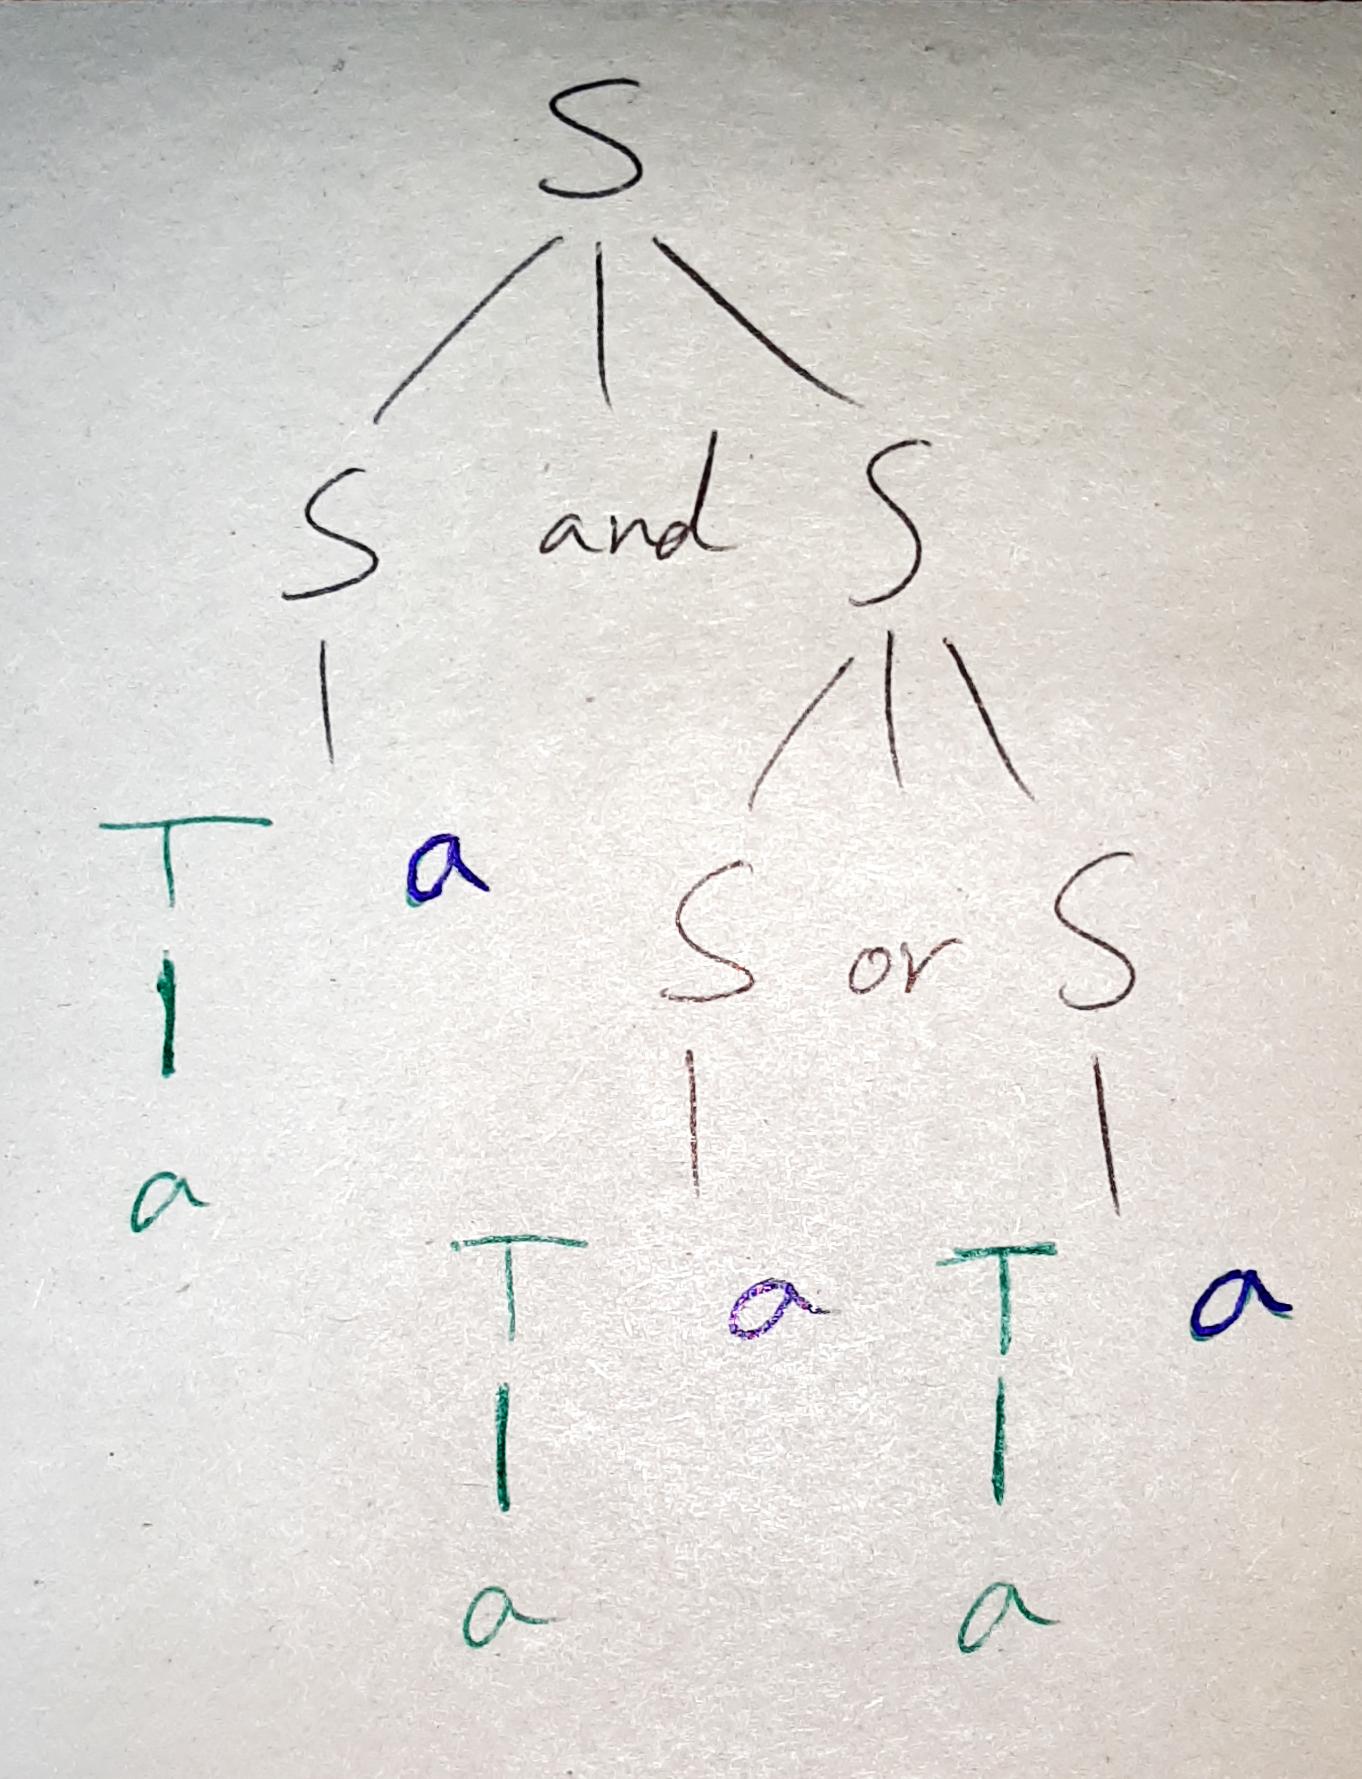 S
S and S
T a
S or S
a
T a T a
a a